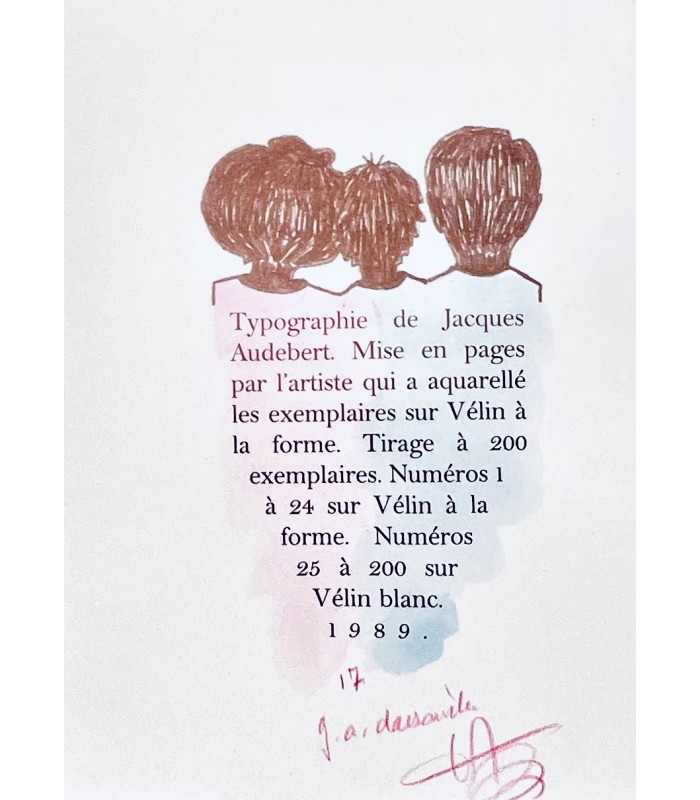 Typographie de Jacques
Audebert. Mise en pages
par l'artiste qui a aquarellé
les exemplaires sur Vélin à
la forme. Tirage à 200
exemplaires. Numéros 1
à 24 sur Vélin à la
forme. Numéros
25 à 200 sur
Vélin blanc.
1989.
17